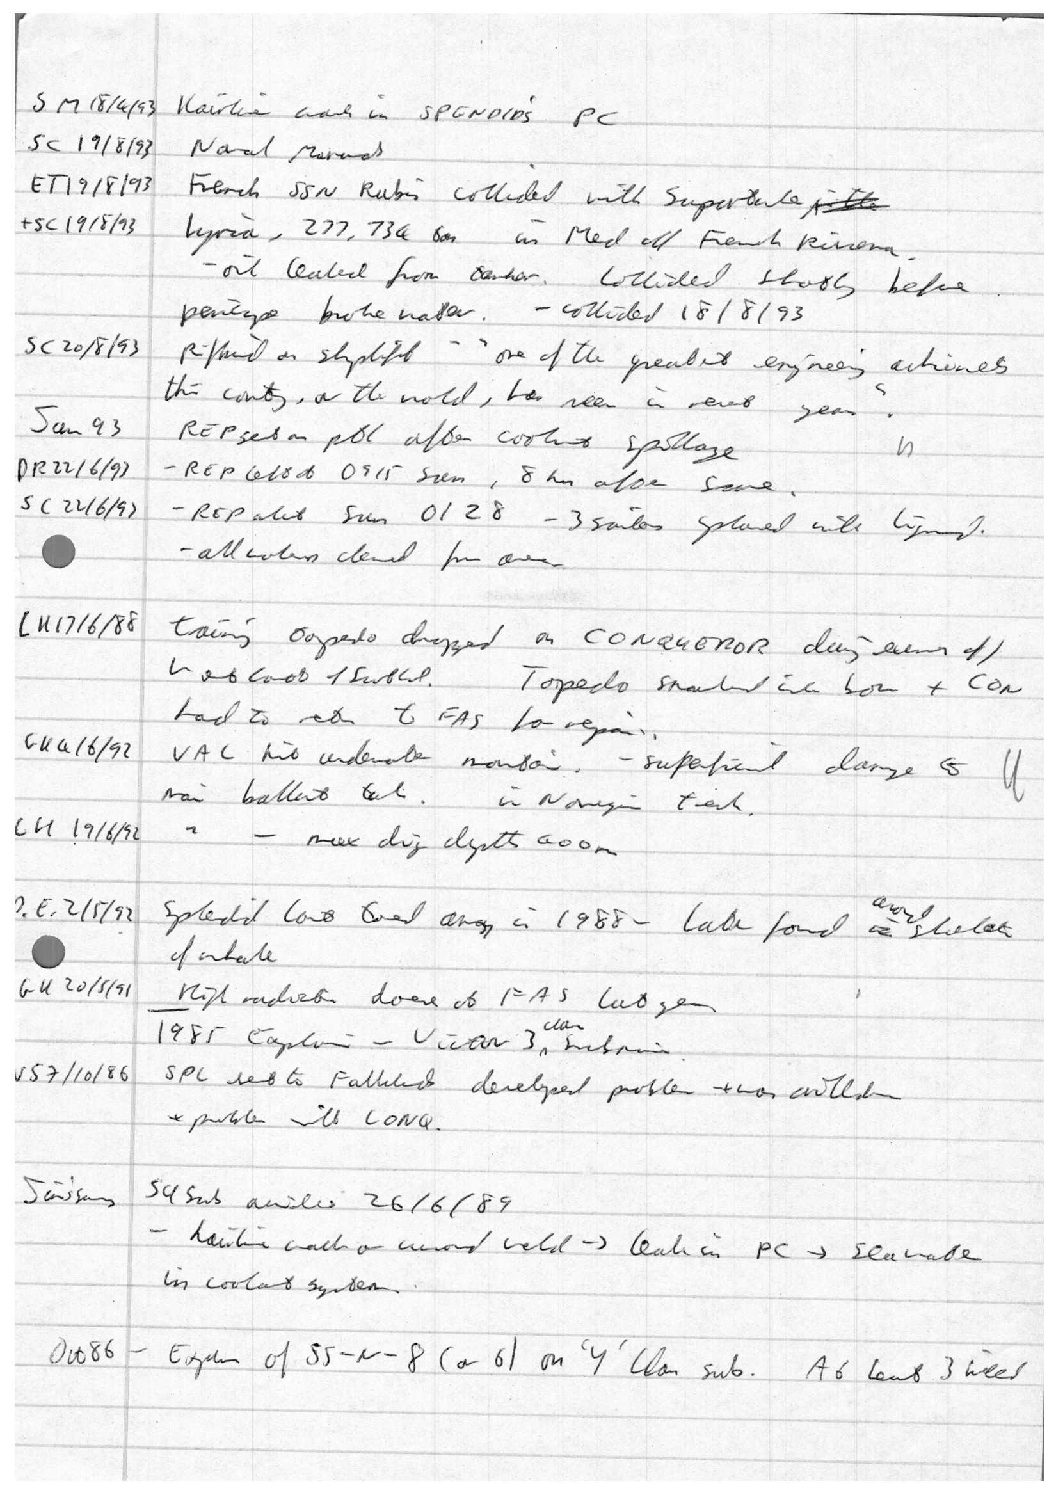 SM 18/4/93 Hairline crack in SPLENDID's PC
SC 19/8/93 Naval
ET 19/8/93 French SSN Rubis collided with Supertanker
+SC 19/8/93 Lyria, 277,734 ton in Med off French Riviera.
- oil leaked from tanker. Collided shortly before
periscope broke water. - collided 18/8/93
SC 20/8/93 Rifkind on shiplift - "one of the greatest engineering achievements
this country, or the world, has seen in recent years".
Jun 93 REP set on pbl after coolant spillage
DR 22/6/93 - REP alert 0915 Sun, 8 hrs after same.
SC 22/6/93 - REP alert Sun 0128 - 3 sailors splashed with liquid.
- all workers cleared from area
LH 17/6/88 training torpedo dropped on CONQUEROR during exercise off
W coast of Scotland. Torpedo smashed into bow + CON
had to return to FAS for repairs.
GH 4/6/92 VAL hit underwater mountain. - superficial damage to
main ballast tank. in Norwegian
LH 19/6/92 " - max dig depth 400m
2/5/92 Splendid lost towed array in 1988 - later found around skeleton
of whale
GH 20/5/91 High radiation dose at FAS last year
1985 - Victor 3 class submarine.
7/10/86 SPL sent to Falklands developed problem + was withdrawn
+ problem with CONQ.
Simpsons Sq Sub 26/6/89
- hairline crack on weld → leak in PC → seawater
in coolant system.
Oct 86 - Explosion of SS-N-8 (or 6) on 'Y' Class sub. At least 3 killed